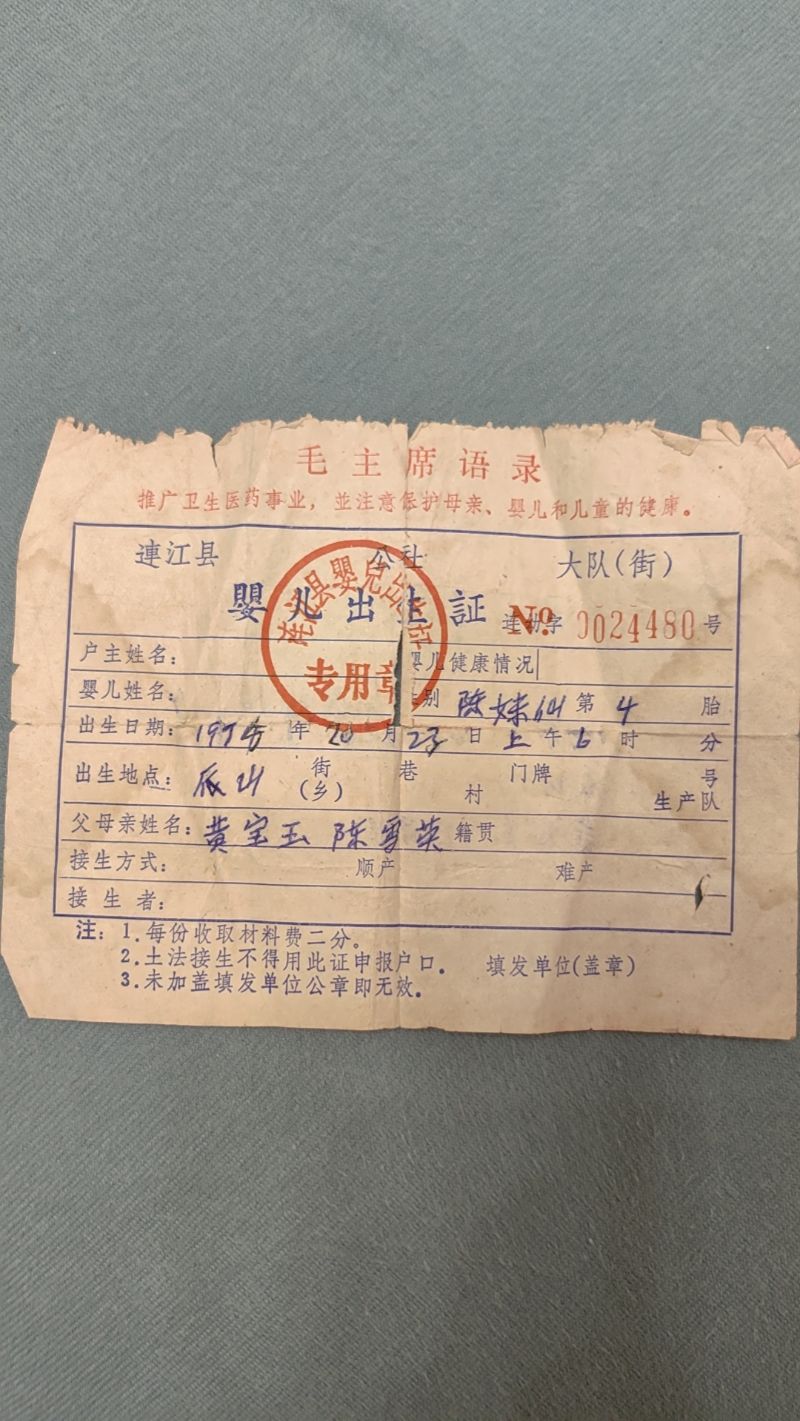 毛主席语录
推广卫生医药事业，並注意保护母亲、婴儿和儿童的健康。
連江县 公社 大队(街)
嬰儿出生証 No 字 0024480 号
户主姓名： 婴儿健康情况
婴儿姓名： 别 陈妹仙 第 4 胎
出生日期： 年 月 23 日 上午 6 时 分
出生地点： 山 街(乡) 巷 村 门牌 号 生产队
父母亲姓名：黄宝玉 陈雪英 籍贯
接生方式： 顺产 难产
接生者：
注：1.每份收取材料费二分。
2.土法接生不得用此证申报户口。 填发单位(盖章)
3.未加盖填发单位公章即无效。
专用章